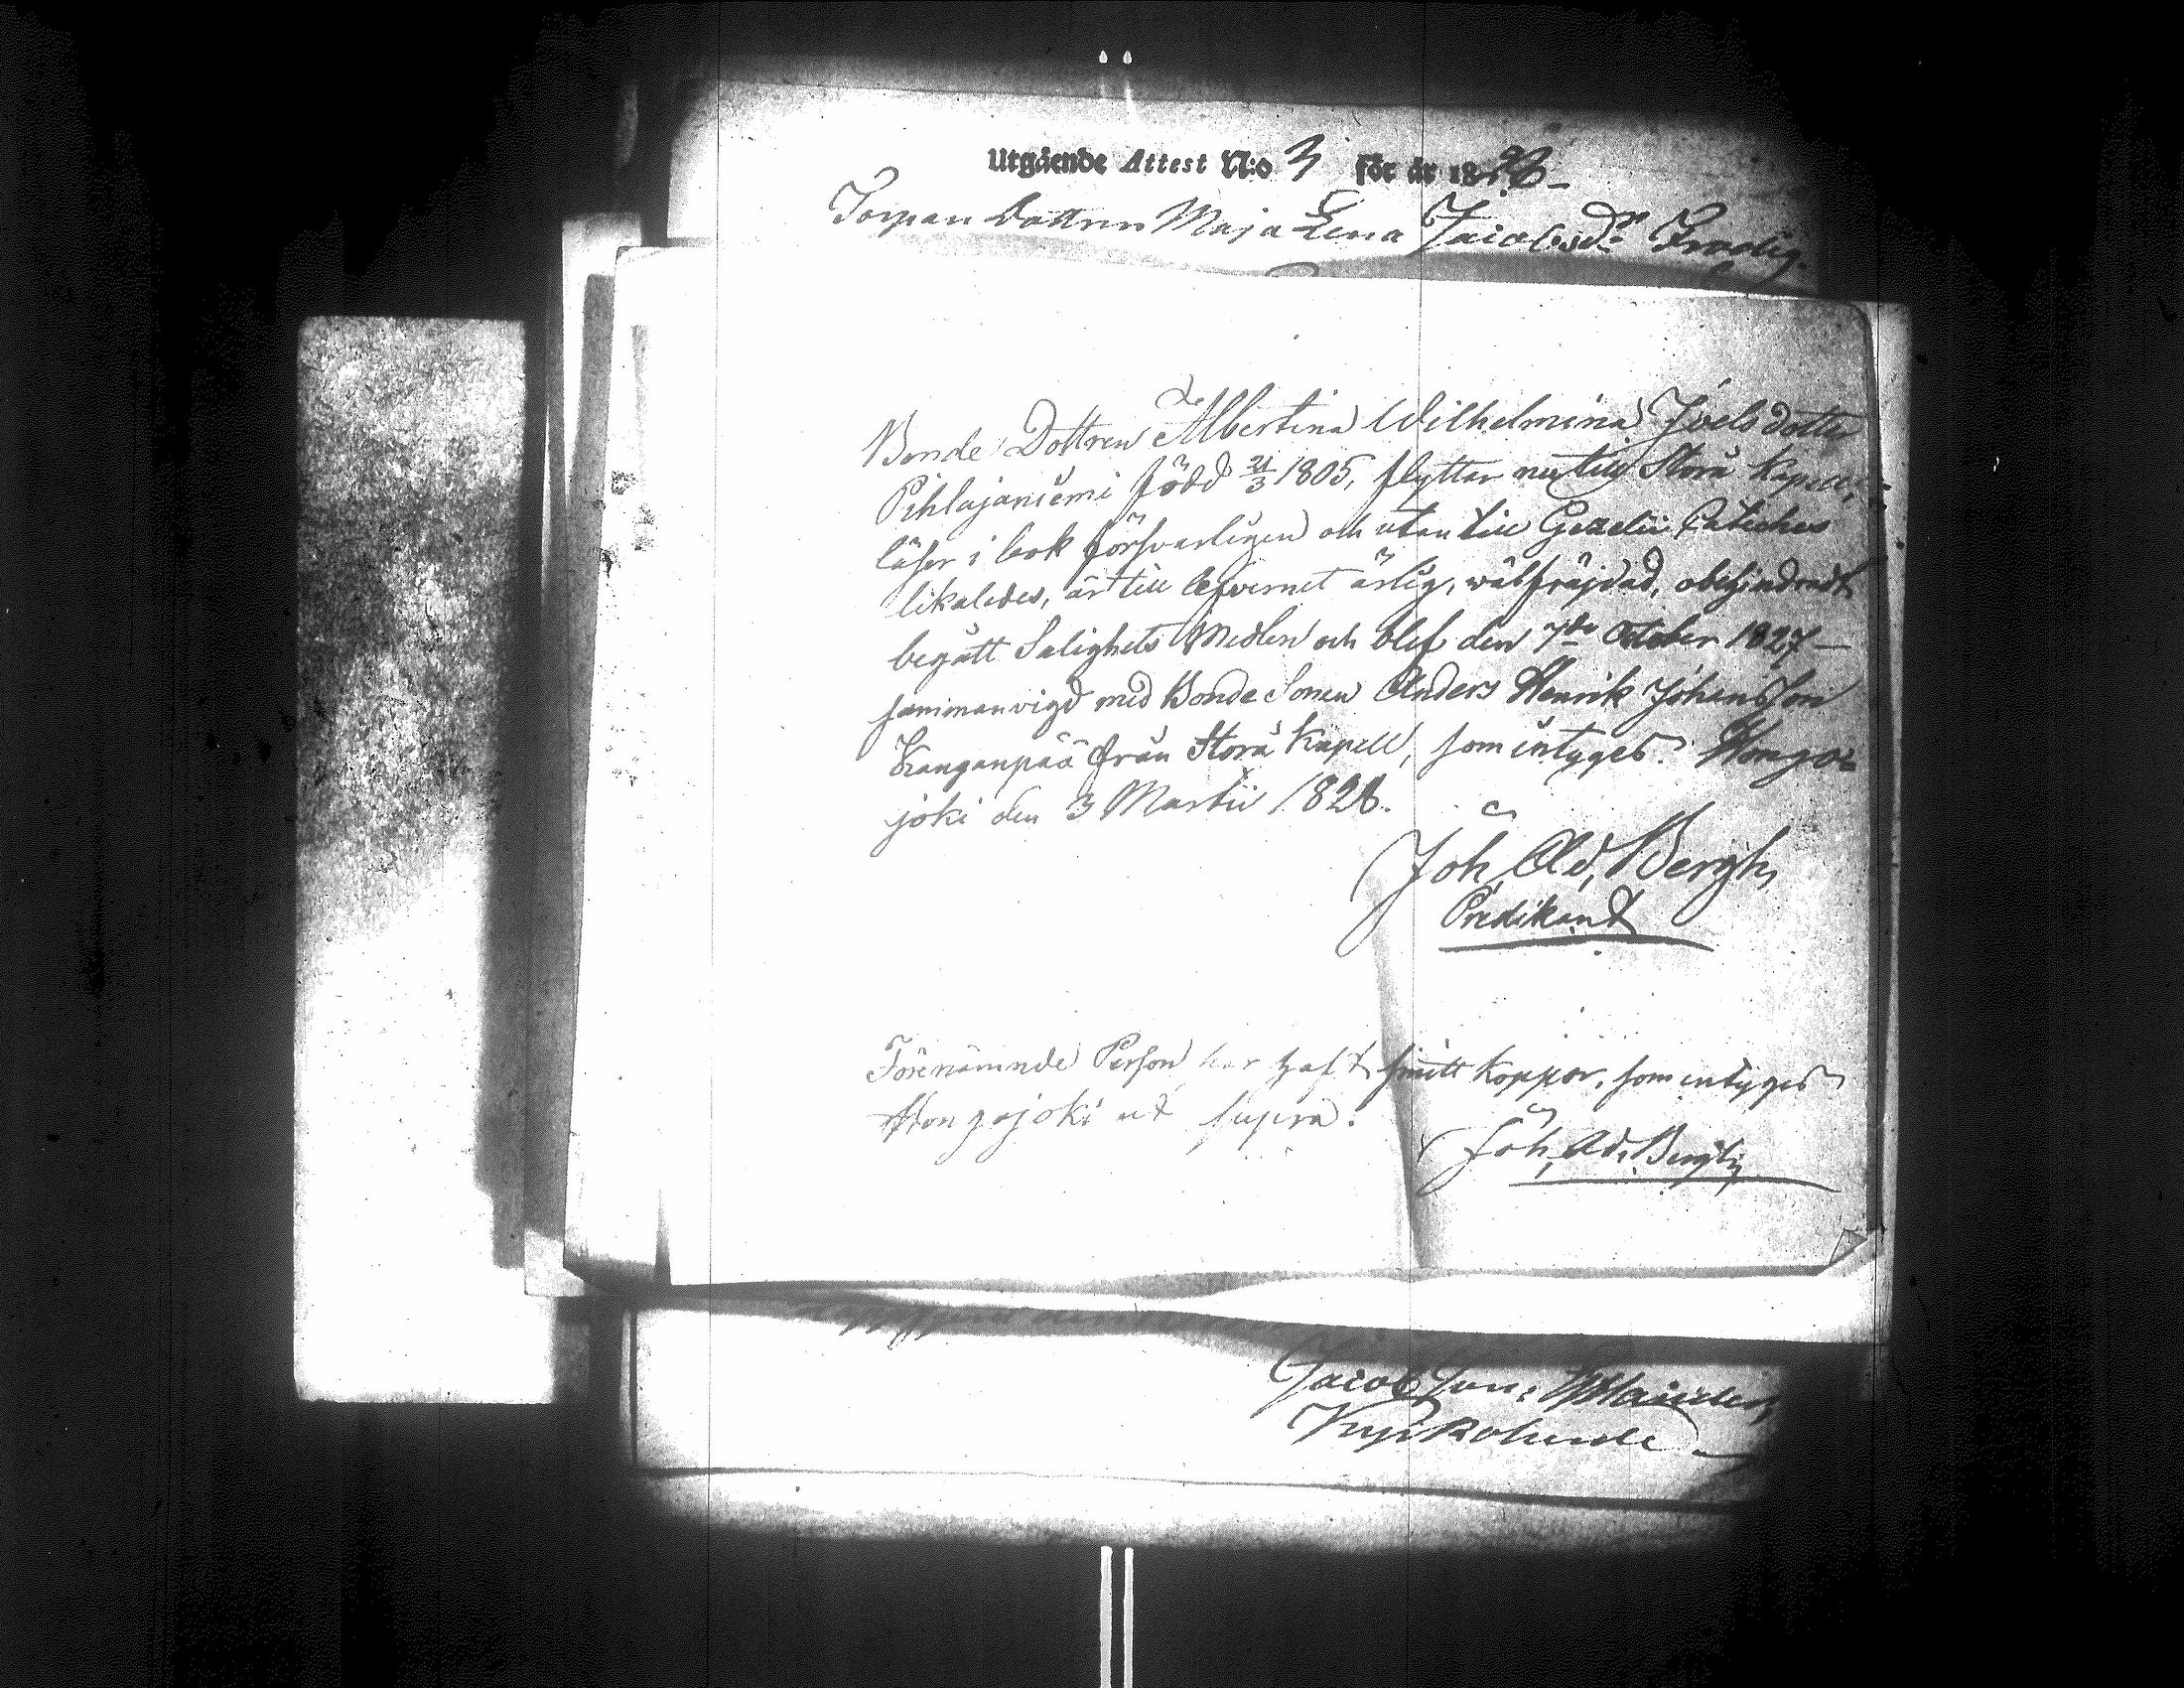 Utgående Attest N:o 3 för år 1828
Torpare Dottren Maja Lena Jacobsdr
Bonde Dottren Albertina Wilhelmina Joelsdotter
Pihlajaniemi född 21/3 1805, flyttar nu till Storå kapell,
läser i bok försvarligen och utan till Gezelii Cateches
likaledes, är till lefvernet ärlig, wälfräjdad, obehindradt
begått Salighets Medlen och blef den 7de October 1827 –
sammanvigd med Bonde Sonen Anders Henrik Johansson
Kanganpää från Storå Kapell, som intyges. Hongo=
joki den 3 Martii 1828.
Joh. Ad. Bergh,
Predikant
Förenämnde Person har haft smitt koppor, som intyges
Hongojoki ut supra.
Joh. Ad. Bergh
Jacob Jon:
Kyrkoherde